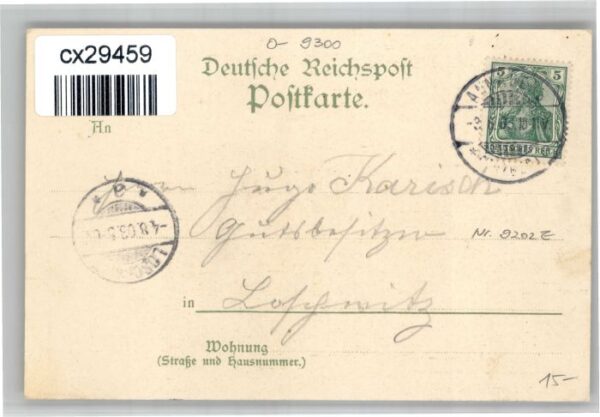 cx29459
0- 9300
Deutsche Reichspost
Postkarte.
5
An
Herrn Hugo Karisch
Gutsbesitzer
Nr. 9202 E
in Loschwitz
-4.8.03.
Wohnung
(Straße und Hausnummer.)
15-